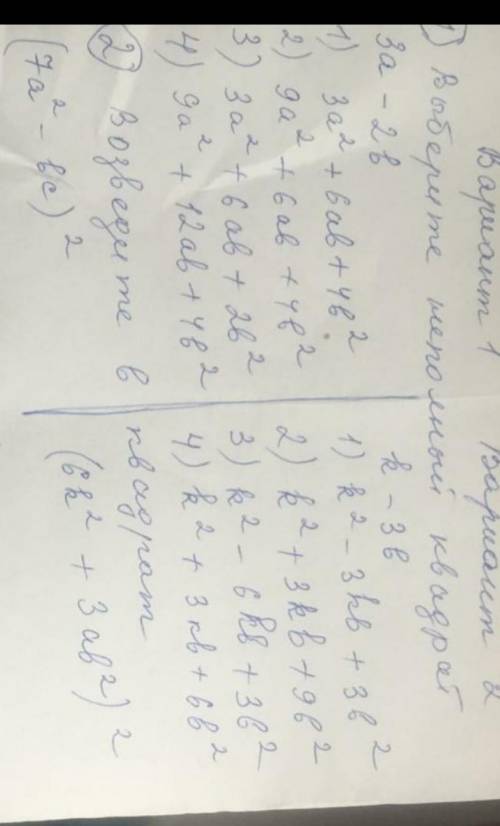 Вариант 1 Вариант 2
1) Выберите неполный квадрат
3a - 2b k - 3b
1) 3a² + 6ab + 4b² 1) k² - 3kb + 3b²
2) 9a² + 6ab + 4b² 2) k² + 3kb + 9b²
3) 3a² + 6ab + 2b² 3) k² - 6kb + 3b²
4) 9a² + 12ab + 4b² 4) k² + 3kb + 6b²
2) Возведите в квадрат
(7a² - bc)² (6k² + 3ab²)²